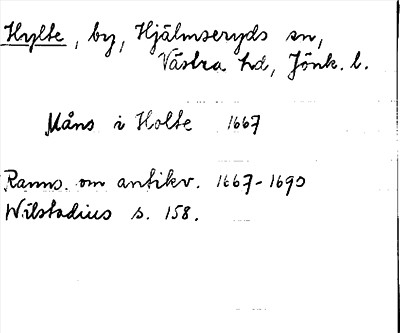 Hylte, by, Hjälmseryds sn,
Västra hd, Jönk. l.
Måns i Holte 1667
Ranns. om antikv. 1667-1690
Wilstadius s. 158.